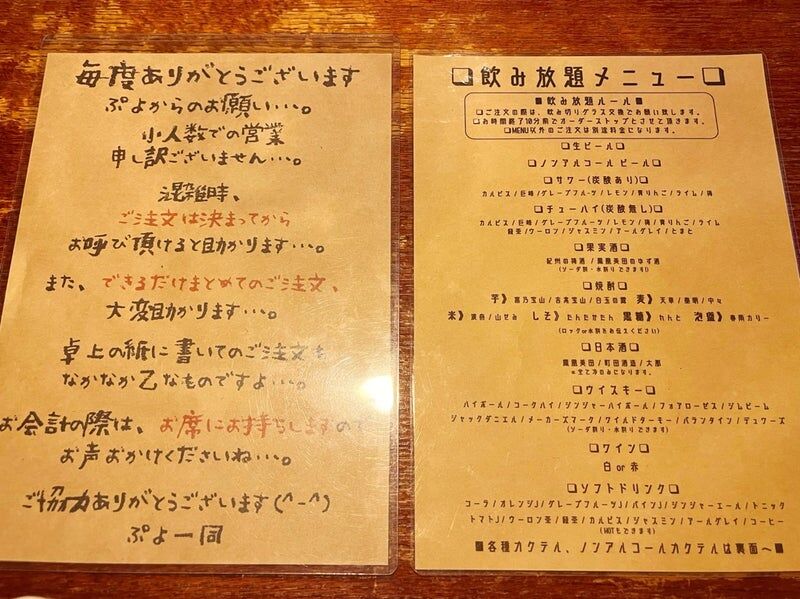 毎度ありがとうございます
ぷよからのお願い…。
小人数での営業
申し訳ございません…。
混雑時、
ご注文は決まってから
お呼び頂けると助かります…。
また、できるだけまとめてのご注文、
大変助かります…。
卓上の紙に書いてのご注文も
なかなか乙なものですよ…。
お会計の際は、お席にお持ちしますので
お声おかけくださいね…。
ご協力ありがとうございます(^-^)
ぷよ一同
❏飲み放題メニュー❏
■飲み放題ルール■
❏ご注文の際は、飲み切りグラス交換でお願い致します。
❏お時間終了10分前でオーダーストップとさせて頂きます。
❏MENU以外のご注文は別途料金になります。
❏生ビール❏
❏ノンアルコールビール❏
❏サワー(炭酸あり)❏
カルピス/巨峰/グレープフルーツ/レモン/青りんご/ライム/梅
❏チューハイ(炭酸無し)❏
カルピス/巨峰/グレープフルーツ/レモン/梅/青りんご/ライム
緑茶/ウーロン/ジャスミン/アールグレイ/とまと
❏果実酒❏
紀州の梅酒/鳳凰美田のゆず酒
(ソーダ割・水割りできます!)
❏焼酎❏
芋》富乃宝山/吉兆宝山/白玉の露 麦》天草/兼明/中々
米》/山せみ しそ》たんたかたん 黒糖》れんと 泡盛》春雨カリー
(ロックor水割をお伝えください)
❏日本酒❏
鳳凰美田/町田酒造/大那
※全て冷のみになります。
❏ウイスキー❏
ハイボール/コークハイ/ジンジャーハイボール/フォアローゼス/ジムビーム
ジャックダニエル/メーカーズマーク/ワイルドターキー/バランタイン/デュワーズ
(ソーダ割り・水割りできます)
❏ワイン❏
白 or 赤
❏ソフトドリンク❏
コーラ/オレンジJ/グレープフルーツJ/パインJ/ジンジャーエール/トニック
トマトJ/ウーロン茶/緑茶/カルピス/ジャスミン/アールグレイ/コーヒー
(HOTもできます)
■各種カクテル、ノンアルコールカクテルは裏面へ■